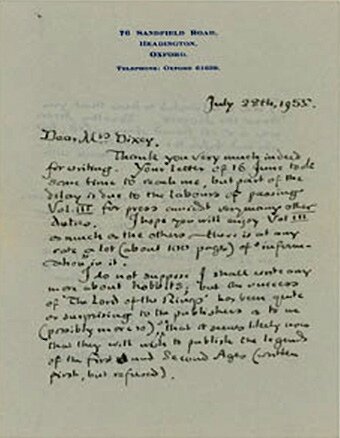 76 SANDFIELD ROAD,
HEADINGTON,
OXFORD.
TELEPHONE: OXFORD 61639.
July 22th, 1955.
Dear Mrs Dixey,
Thank you very much indeed
for writing. Your letter of 16 June took
some time to reach me, but part of the
delay is due to the labours of passing
Vol. III for press amidst very many other
duties. I hope you will enjoy Vol III
as much as the others – there is at any
rate a lot (about 100 pages) of "inform-
ation" in it.
I do not suppose I shall write any
more about hobbits; but the success
of 'The Lord of the Rings' has been quite
so surprising to the publishers as to me
(possibly more so), that it seems likely now
that they will wish to publish the legends
of the First and Second Ages (written
first, but refused).